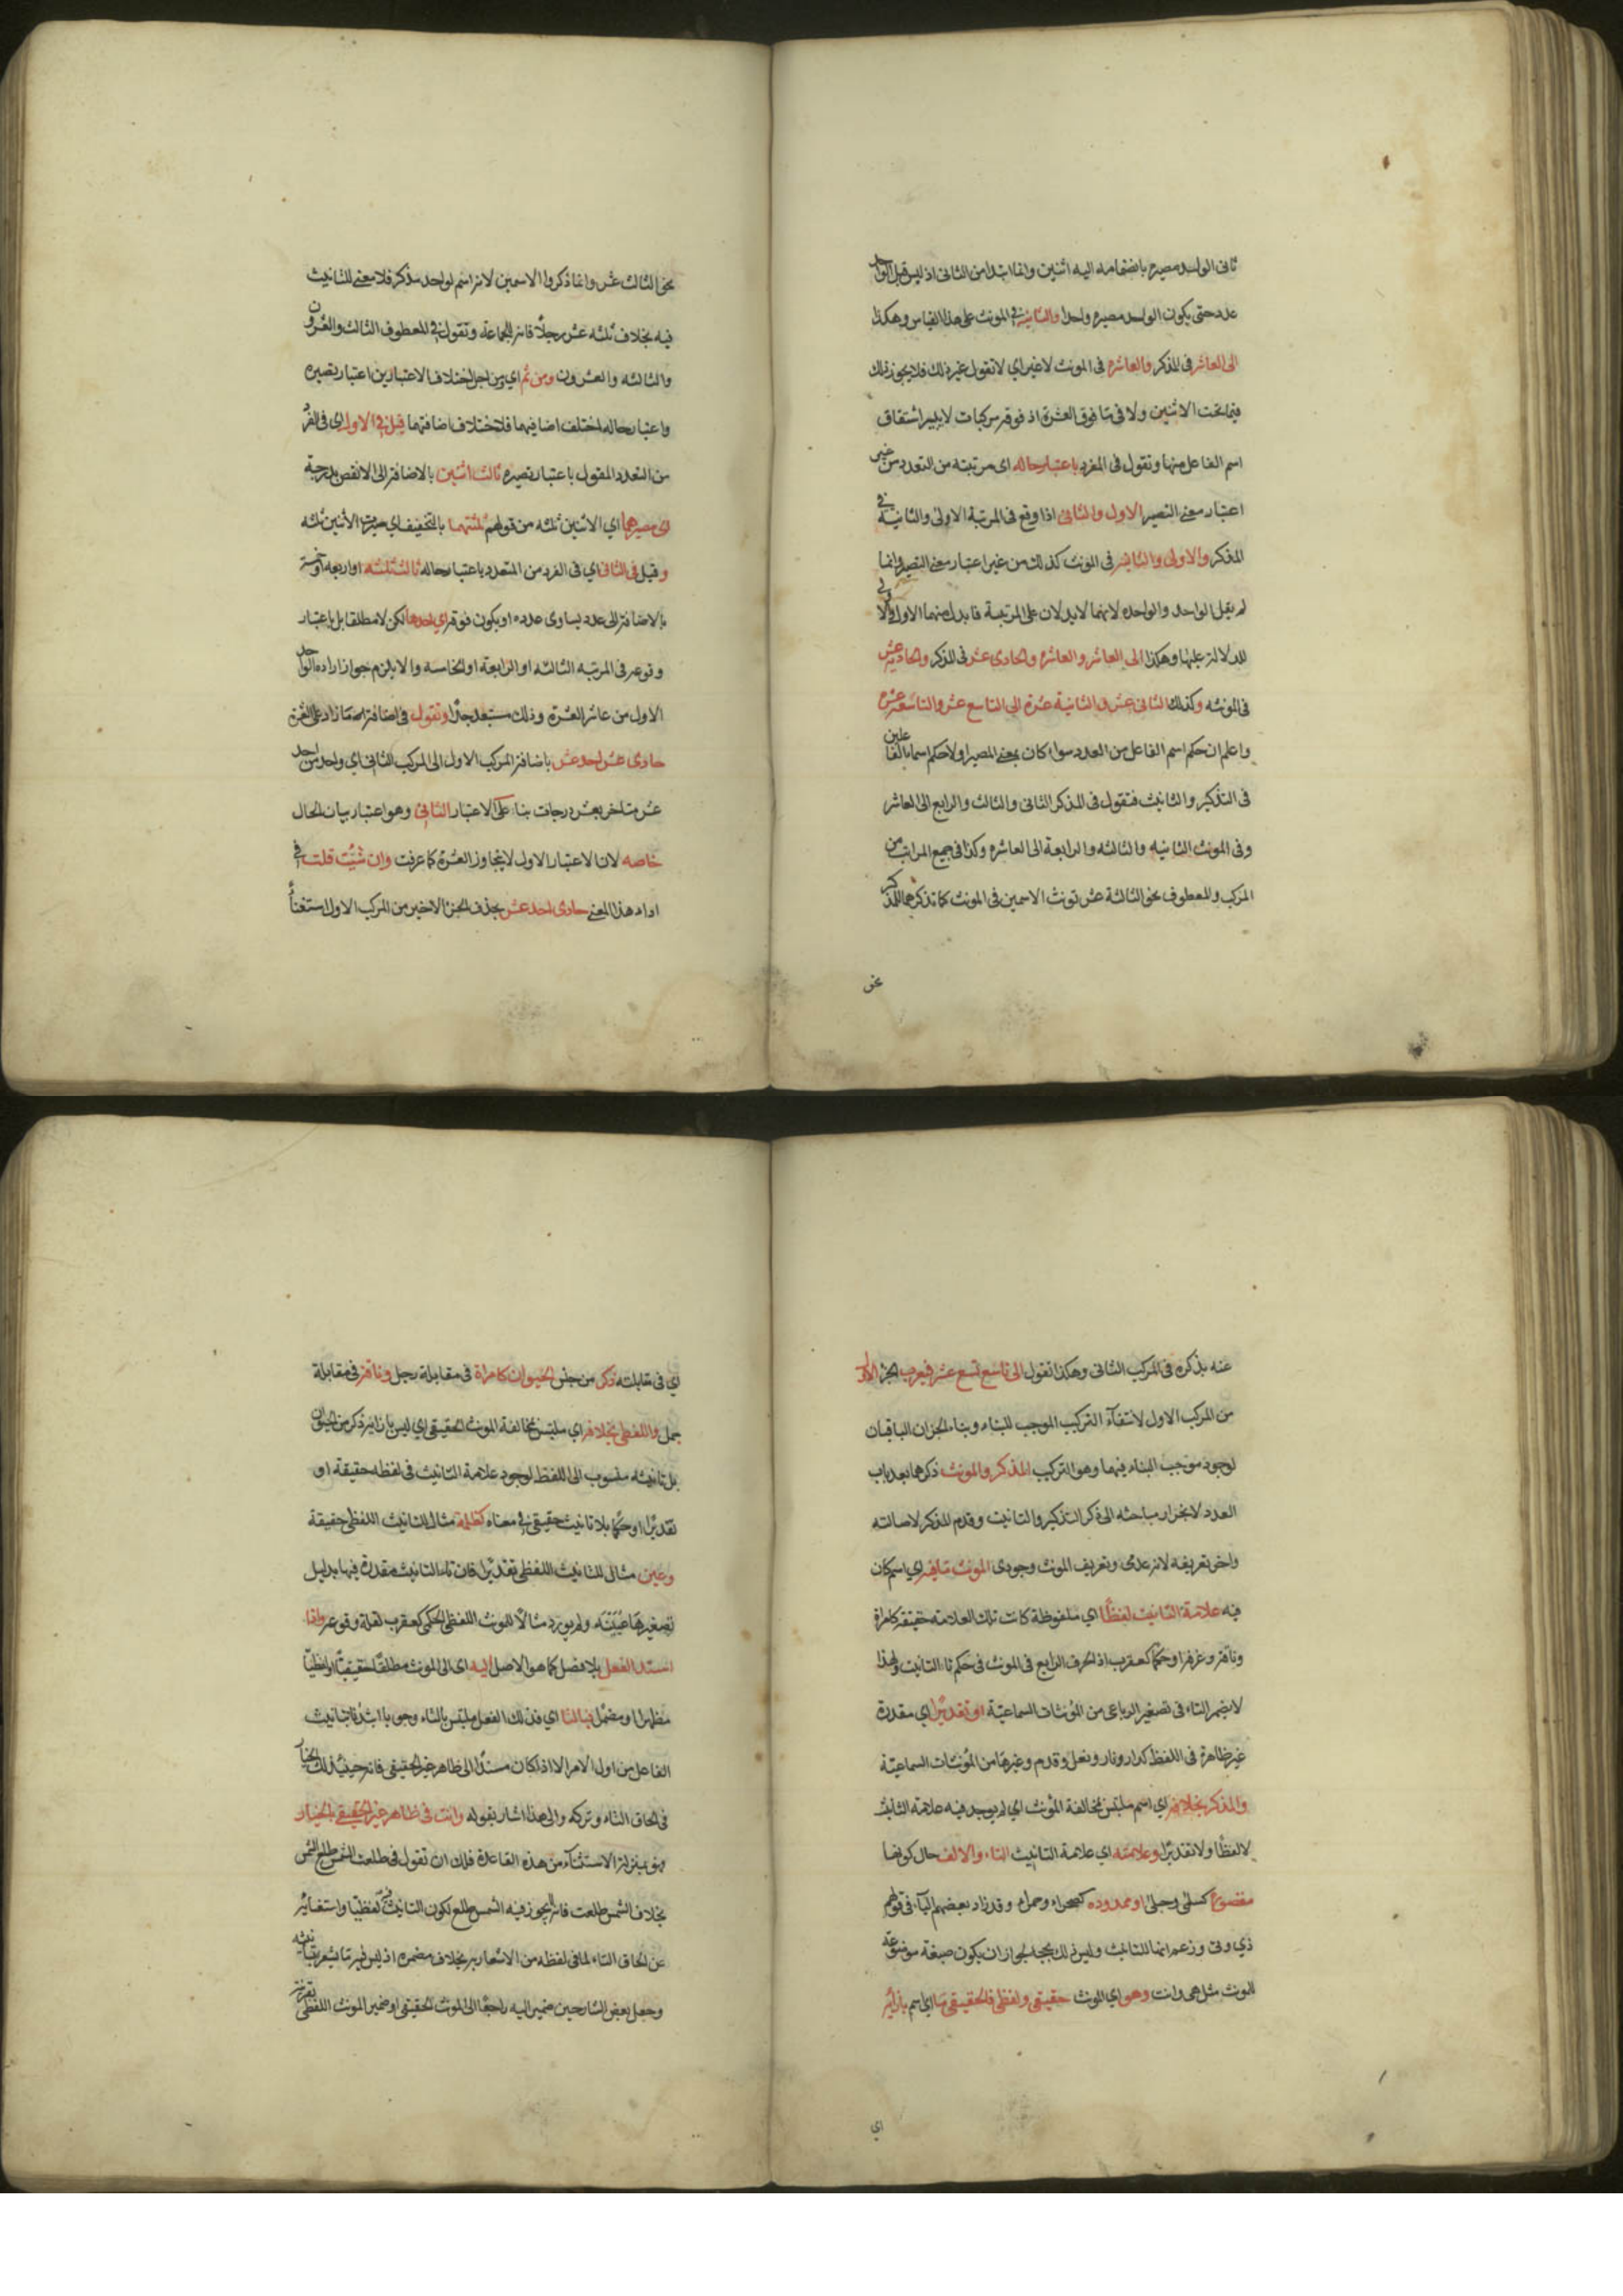 ثانى الواحد مصيره بانضمامه اليه اثنين وانما ابتدا من الثانى اذ ليس قبل الواحد
عدد حتى يكون الواحد مصيره واحدا والثانية فى المونث على هذا القياس وهكذا
الى العاشر فى المذكر والعاشرة فى المونث لا غير اي لا تقول غير ذلك فلا يجوز ذلك
فيما تحت الاثنين ولا فى ما فوق العشرة اذ فوقه مركبات لا يتيسر اشتقاق
اسم الفاعل منها وتقول فى المفرد باعتبار حاله اى مرتبته من التعدد من غير
اعتبار معنى التصيير الاول والثانى اذا وقع فى المرتبة الاولى والثانية فى
المذكر والاولى والثانية فى المونث كذلك من غير اعتبار معنى التصيير وانما
لم يقل الواحد والواحده لانهما لا يدلان على المرتبة فابدل منهما الاول والاولى
للدلالة عليها وهكذا الى العاشر والعاشره والحادى عشر فى المذكر والحادية عشر
فى المونثه وكذلك الثانى عشر والثانية عشرة الى التاسع عشر والتاسعة عشره
واعلم ان حكم اسم الفاعل من العدد سواء كان بمعنى المصير اولا حكم اسماء الفاعلين
فى التذكير والتانيث فتقول فى المذكر الثانى والثالث والرابع الى العاشر
وفى المونث الثانيه والثالثه والرابعة الى العاشره وكذا فى جميع المراتب من
المركب والمعطوف نحو الثالثة عشر تونث الاسمين فى المونث كما تذكرهما للمذكر
نحو
نحو الثالث عشر وانما ذكروا الاسمين لانه اسم لواحد مذكر فلا معنى للتانيث
فيه بخلاف ثلثه عشر رجلا فانه للجماعة وتقول فى المعطوف الثالث والعشرون
والثالثه والعشرون ومن ثم اي ومن اجل اختلاف الاعتبارين اعتبار تصييره
واعتبار حاله اختلف اضافتهما فلاختلاف اضافتهما قيل فى الاول اى فى المفرد
من التعدد المقول باعتبار تصييره ثالث اثنين بالاضافة الى الانقص بدرجة
اى مصيرهما اي الاثنين ثلثه من قولهم ثلثتهما بالتخفيف اي صيرت الاثنين ثلثه
وقيل فى الثانى اي فى المفرد من المتعدد باعتبار حاله ثالث ثلثه او اربعه او خمسة
بالاضافة الى عدد يساوى عدده او يكون فوقه اي احدها لكن لا مطلقا بل باعتبار
وقوعه فى المرتبه الثالثه او الرابعة او الخامسه والا يلزم جواز ارادة الواحد
الاول من عاشر العشرة وذلك مستبعد جدا وتقول فى اضافة ما زاد على العشرة
حادى عشر احد عشر باضافة المركب الاول الى المركب الثانى اي واحد من احد
عشر متاخر بعشر درجات بناء على الاعتبار الثانى وهو اعتبار بيان الحال
خاصه لان الاعتبار الاول لا يتجاوز العشرة كما عرفت وان شئت قلت فى
اداء هذا المعنى حادى احد عشر بحذف الجزء الاخير من المركب الاول استغناء
عنه بذكره فى المركب الثانى وهكذا تقول الى تاسع تسع عشر فيعرب الجزء الاول
من المركب الاول لانتفاء التركيب الموجب للبناء وبناء الجزان الباقيان
لوجود موجب البناء فيهما وهو التركيب المذكر والمونث ذكرهما بعد باب
العدد لانجرار مباحثه الى ذكر التذكير والتانيث وقدم المذكر لاصالته
واخر تعريفه لانه عدمى وتعريف المونث وجودى المونث ما فيه اي اسم كان
فيه علامة التانيث لفظا اي ملفوظة كانت تلك العلامه حقيقة كامراة
وناقة وغرفة او حكما كعقرب اذ الحرف الرابع فى المونث فى حكم تاء التانيث ولهذا
لا يضم التاء فى تصغير الرباعى من المونثات السماعية او تقديرا اي مقدرة
غير ظاهرة فى اللفظ كدار ونار ونعل وقدم وغيرها من المونثات السماعية
والمذكر بخلافه اي اسم ملتبس بمخالفة المونث اي لم يوجد فيه علامة التانيث
لا لفظا ولا تقديرا وعلامته اي علامة التانيث التاء والالف حال كونها
مقصورة كسلمى وحبلى او ممدوده كصحراء وحمراء وقد زاد بعضهم الياء فى قولهم
ذي وتى وزعم انها للتانيث وليس ذلك بحجه لجواز ان يكون صيغة موضوعة
للمونث مثل هى وانت وهو اي المونث حقيقى ولفظى فالحقيقى ما اي اسم بازائه
اي
اي فى مقابلته ذكر من جنس الحيوان كامراة فى مقابلة رجل وناقة فى مقابلة
جمل واللفظى بخلافه اي ملتبس بمخالفة المونث الحقيقى اي ليس بازائه ذكر من الحيوان
بل تانيثه منسوب الى اللفظ لوجود علامة التانيث فى لفظه حقيقة او
تقديرا او حكما بلا تانيث حقيقى فى معناه كظلمة مثال للتانيث اللفظى حقيقة
وعين مثال للتانيث اللفظى تقديرا فان تاء التانيث مقدرة فيها بدليل
تصغيرها عيينه ولم يورد مثالا للمونث اللفظى الحكمى كعقرب لقلة وقوعه واذا
اسند الفعل بلا فصل كما هو الاصل اليه اى الى المونث مطلقا حقيقيا او لفظيا
مظهرا او مضمرا فبالتاء اي فذلك الفعل ملتبس بالتاء وجوبا ايذانا بتانيث
الفاعل من اول الامر الا اذا كان مسندا الى ظاهر غير الحقيقى فانه حينئذ لك الخيار
فى الحاق التاء وتركه والى هذا اشار بقوله وانت فى ظاهر غير الحقيقى بالخيار
وهو بمنزلة الاستثناء من هذه القاعدة فلك ان تقول فى طلعت الشمس طلع الشمس
بخلاف الشمس طلعت فانه لا يجوز فيه الشمس طلع لكون التانيث فيه لفظيا واستغنائه
عن الحاق التاء لما فى لفظه من الاشعار به بخلاف مضمره اذ ليس فيه ما يشعر بتانيثه
وجعل بعض الشارحين ضمير اليه راجعا الى المونث الحقيقى او ضمير المونث اللفظى بقرينة